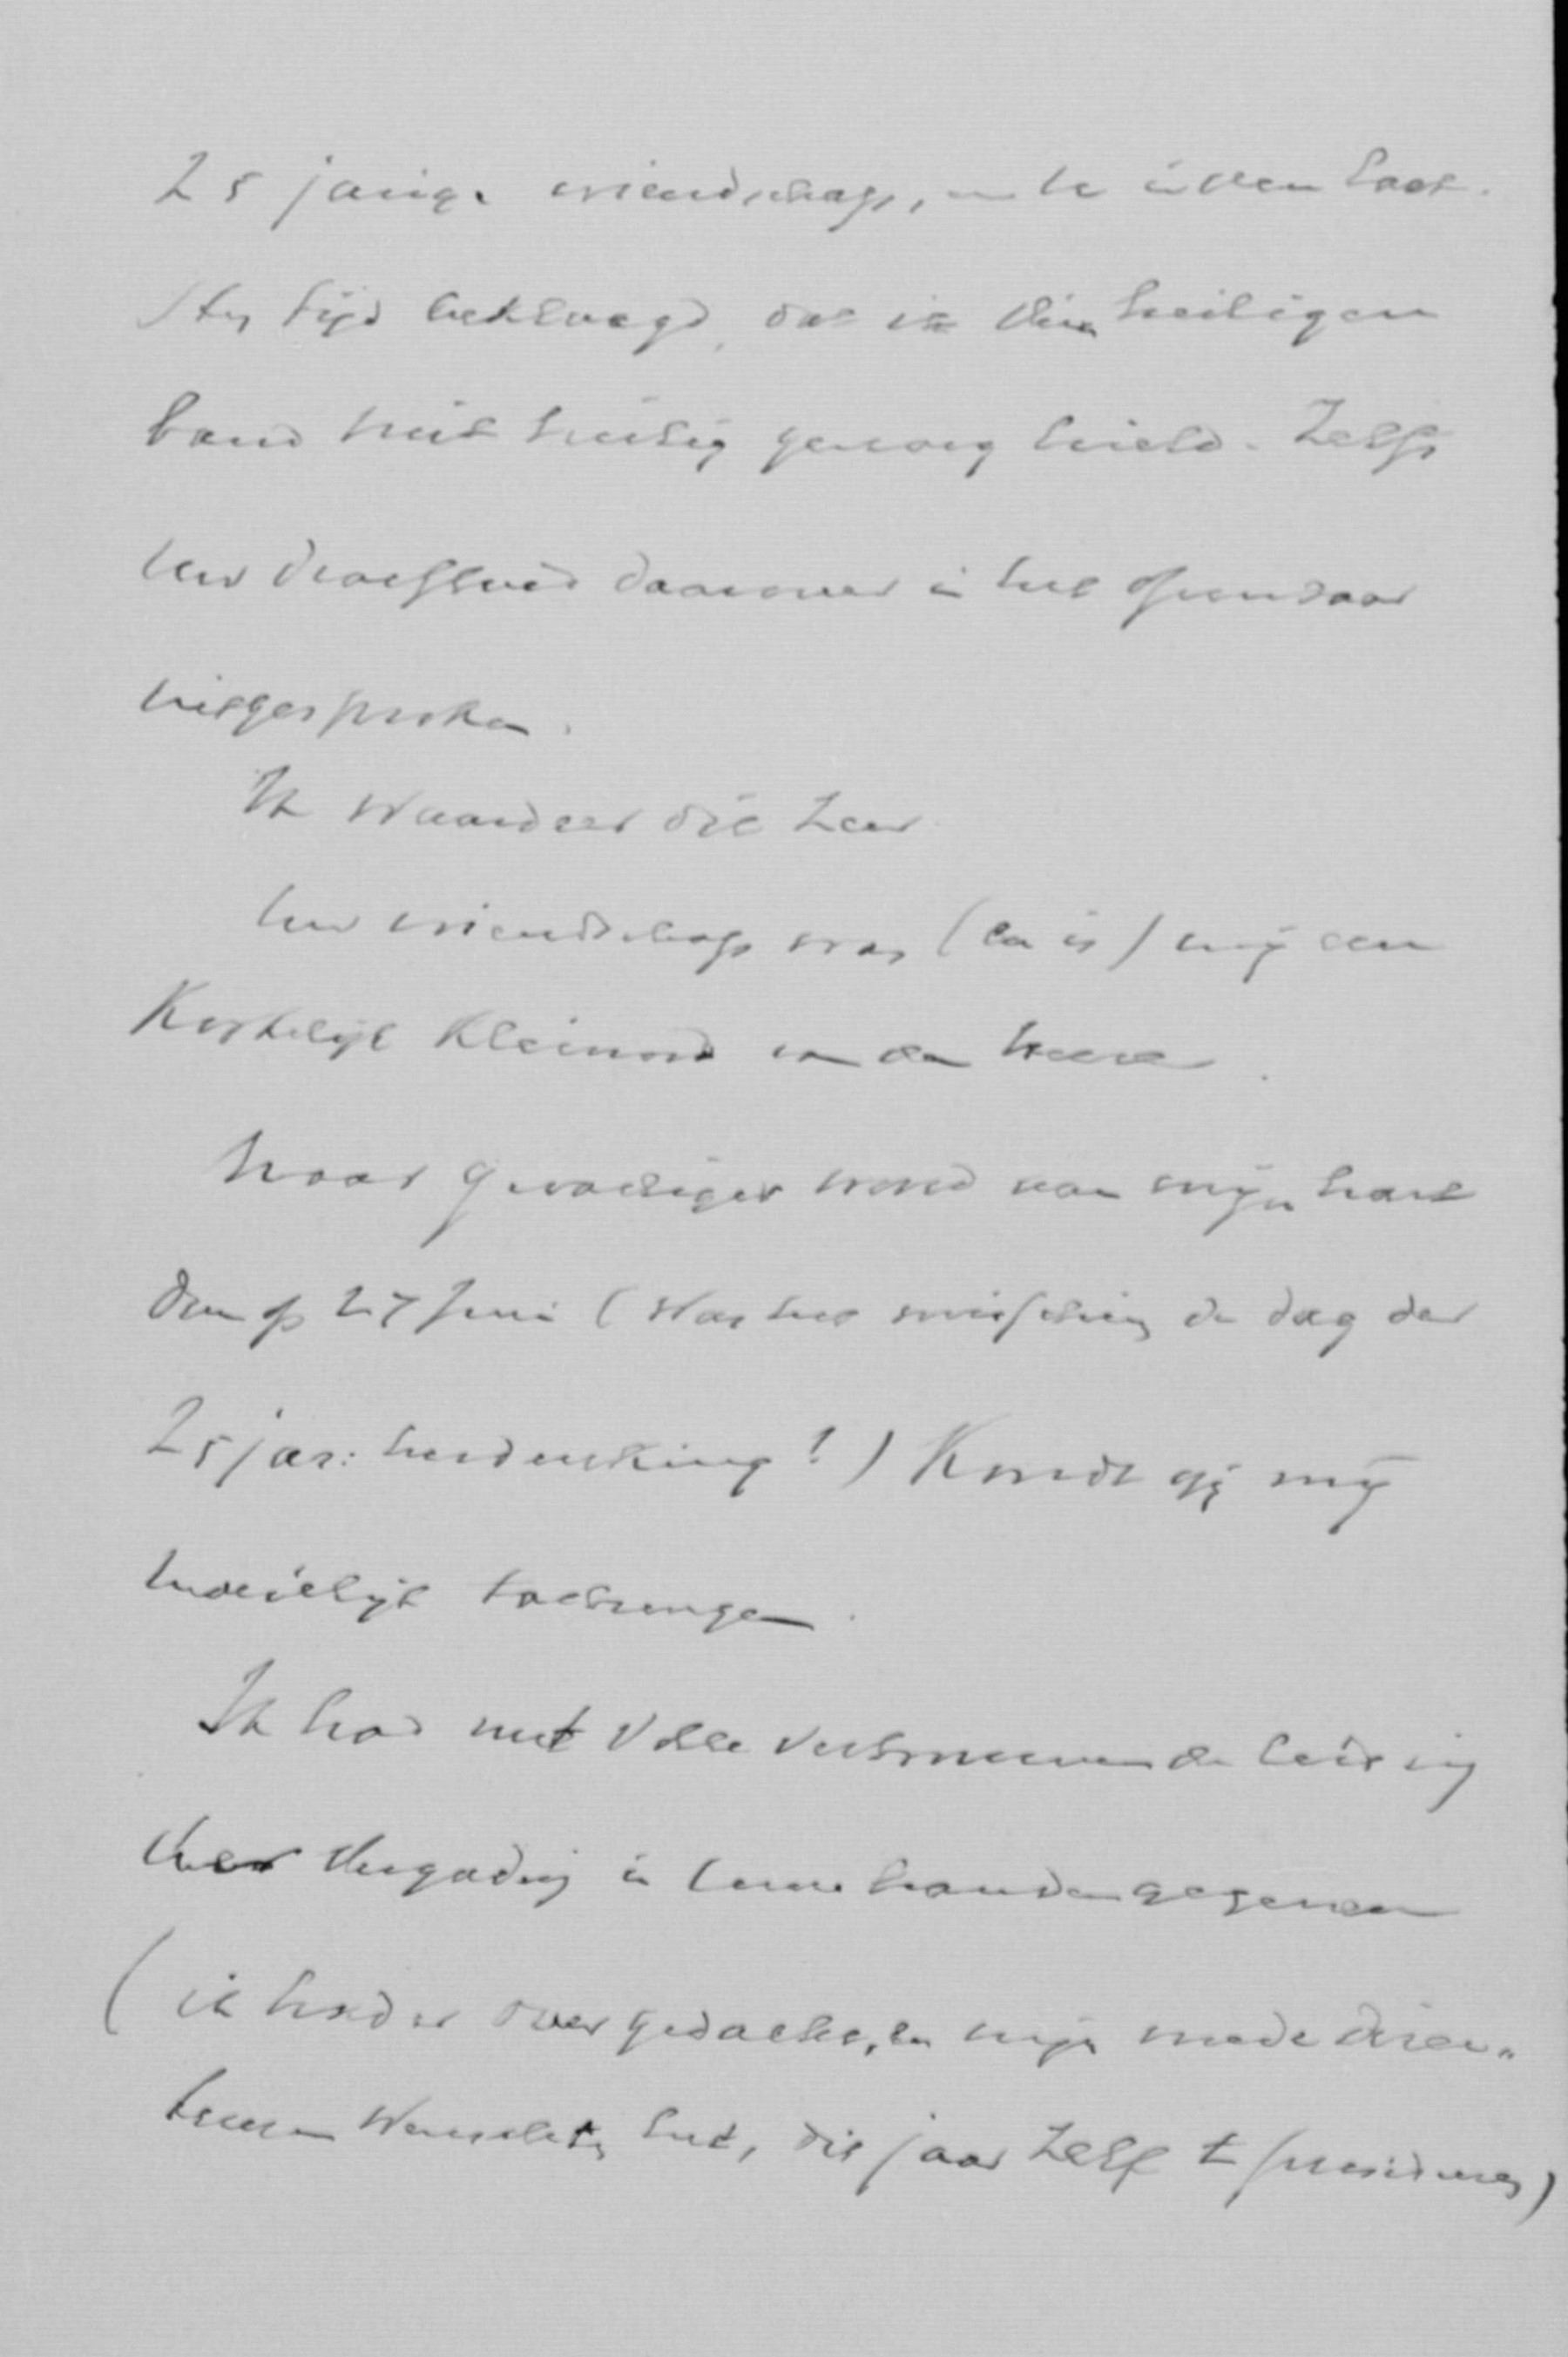 25 jarige vriendschap, en te uwen laat-
sten tijd beklaagd, dat ik dien heiligen
band niet heilig genoeg hield. Zelfs
Uw droefheid daarover in het openbaar
uitgesproken.
Ik waardeer die zeer.
Uw vriendschap was (en is) mij een
Kostelijk Kleinood van den Heere.
Maar gevoeliger wond aan mijn hart
dan op 27 Juni (was het misschien de dag der
25 jar: herdenking?) Kondt gij mij
moeielijk toebrengen.
Ik had met volle vertrouwen de leiding
der Vergadering in Uwe handen gegeven
(ik had er over gedacht, en mijn mede direc-
teuren wenschten het, dit jaar zelf te presideeren)